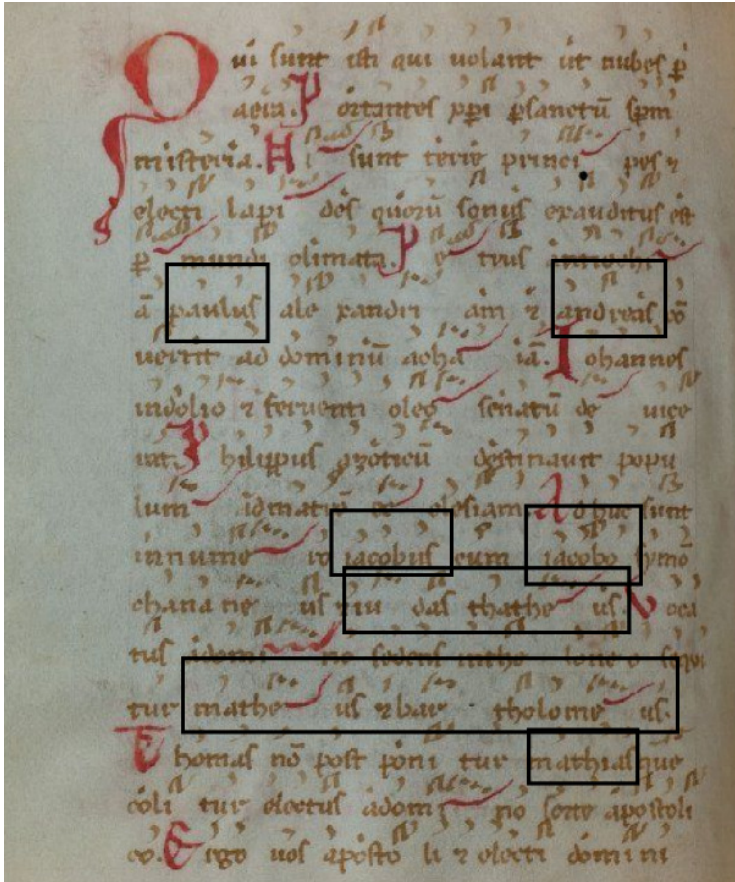 Qui sunt isti qui uolant ut nubes p̄
aeia. Portantes xp̄i p̄sanctū sp̄m
misteria. Hi sunt terre princi pes ⁊
electi lapi des quorū sonus exauditus est
p̄ mundi climata. Pe trus antiochi
ā paulus ale xandri am ⁊ andreas cō
uertit ad dominū acha iā. Iohannes
indolio ⁊ feruenti oleo senatū de uice
rat. Philippus exoticū destinauit popu
lum idmatrē ecclesiam Adhuc sunt
innume ro iacobus cum iacobo symō
chana ne us ⁊ iu das thathe us. Voca
tus idomi no sedens inthe loneo sequi
tur mathe us ⁊ bar tholome us.
Thomas nō post poni tur mathias que
coli tur electus adomi no sorte apostoli
co. Ergo uos aposto li ⁊ electi domini